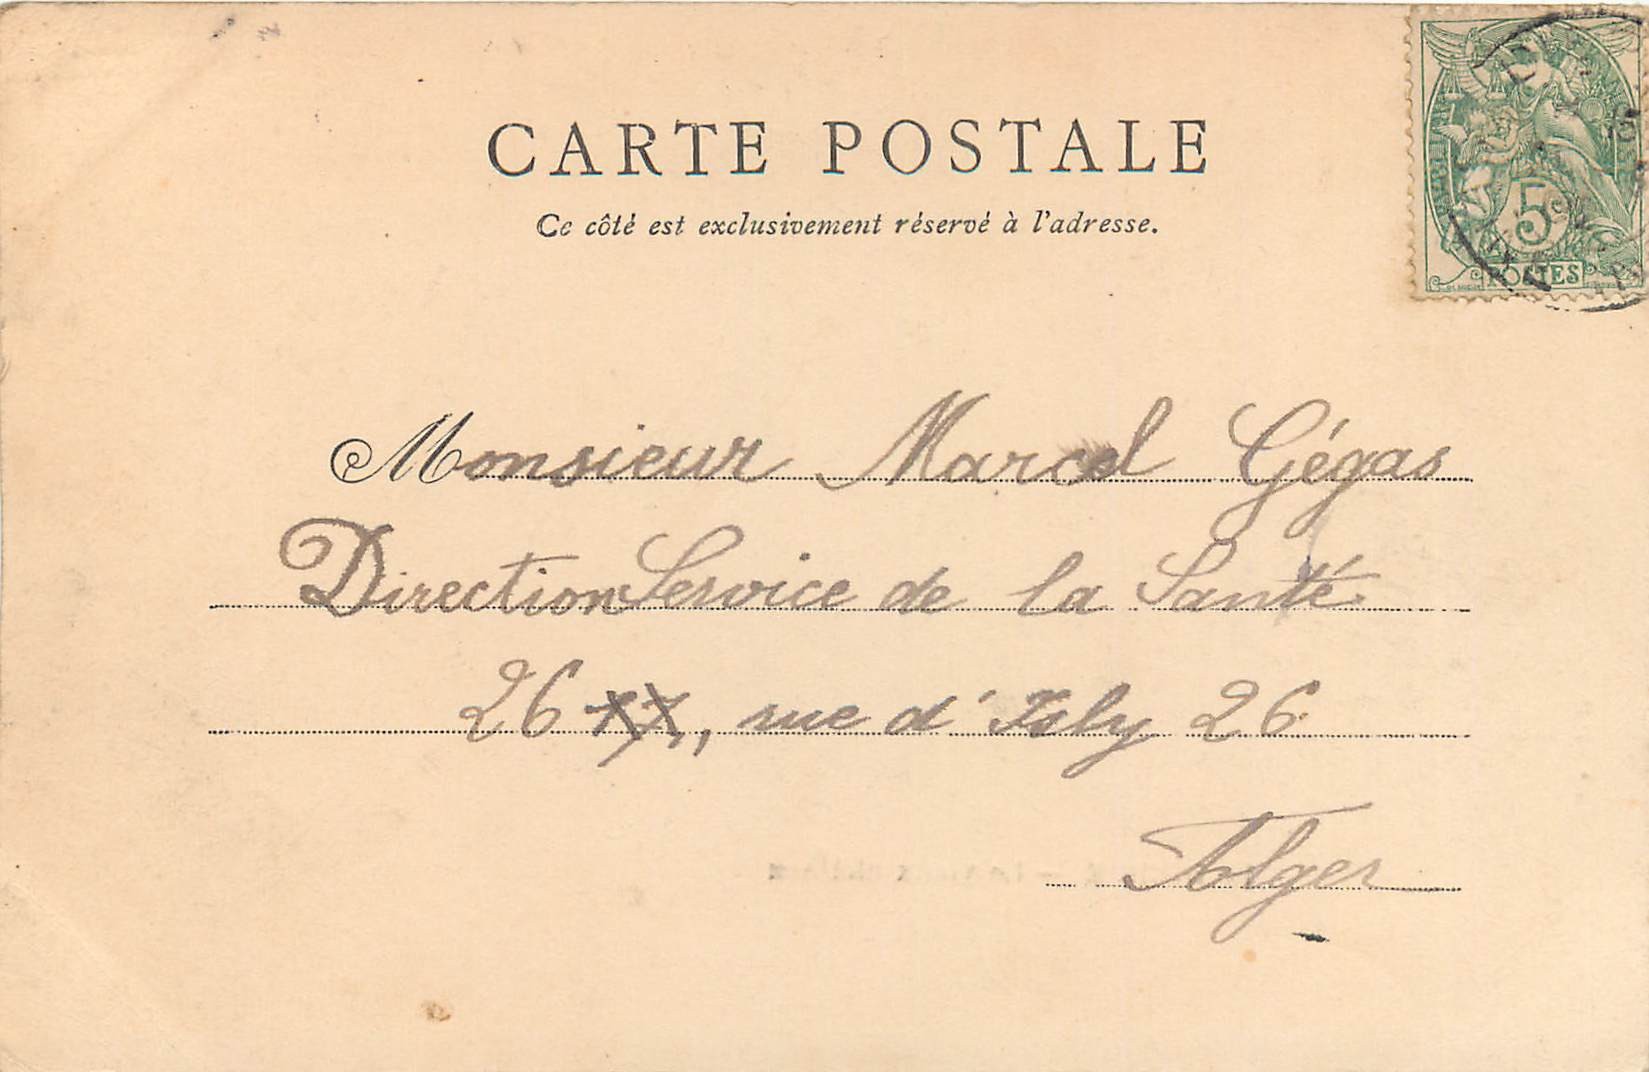 CARTE POSTALE
Ce côté est exclusivement réservé à l'adresse.
5
POSTES
Monsieur Marcel Gégas
Direction Service de la Santé
26 17, rue d'Isly 26
Alger